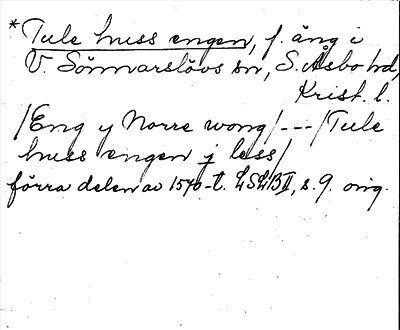 *Tule huss engen, f. äng i
V. Sönnarslövs sn, S. Åsbo hd,
Krist. l.
/Eng y Norre wong/---/Tule
huss engen j less/
förra delen av 1570-t. LSLB II, s. 9. orig.